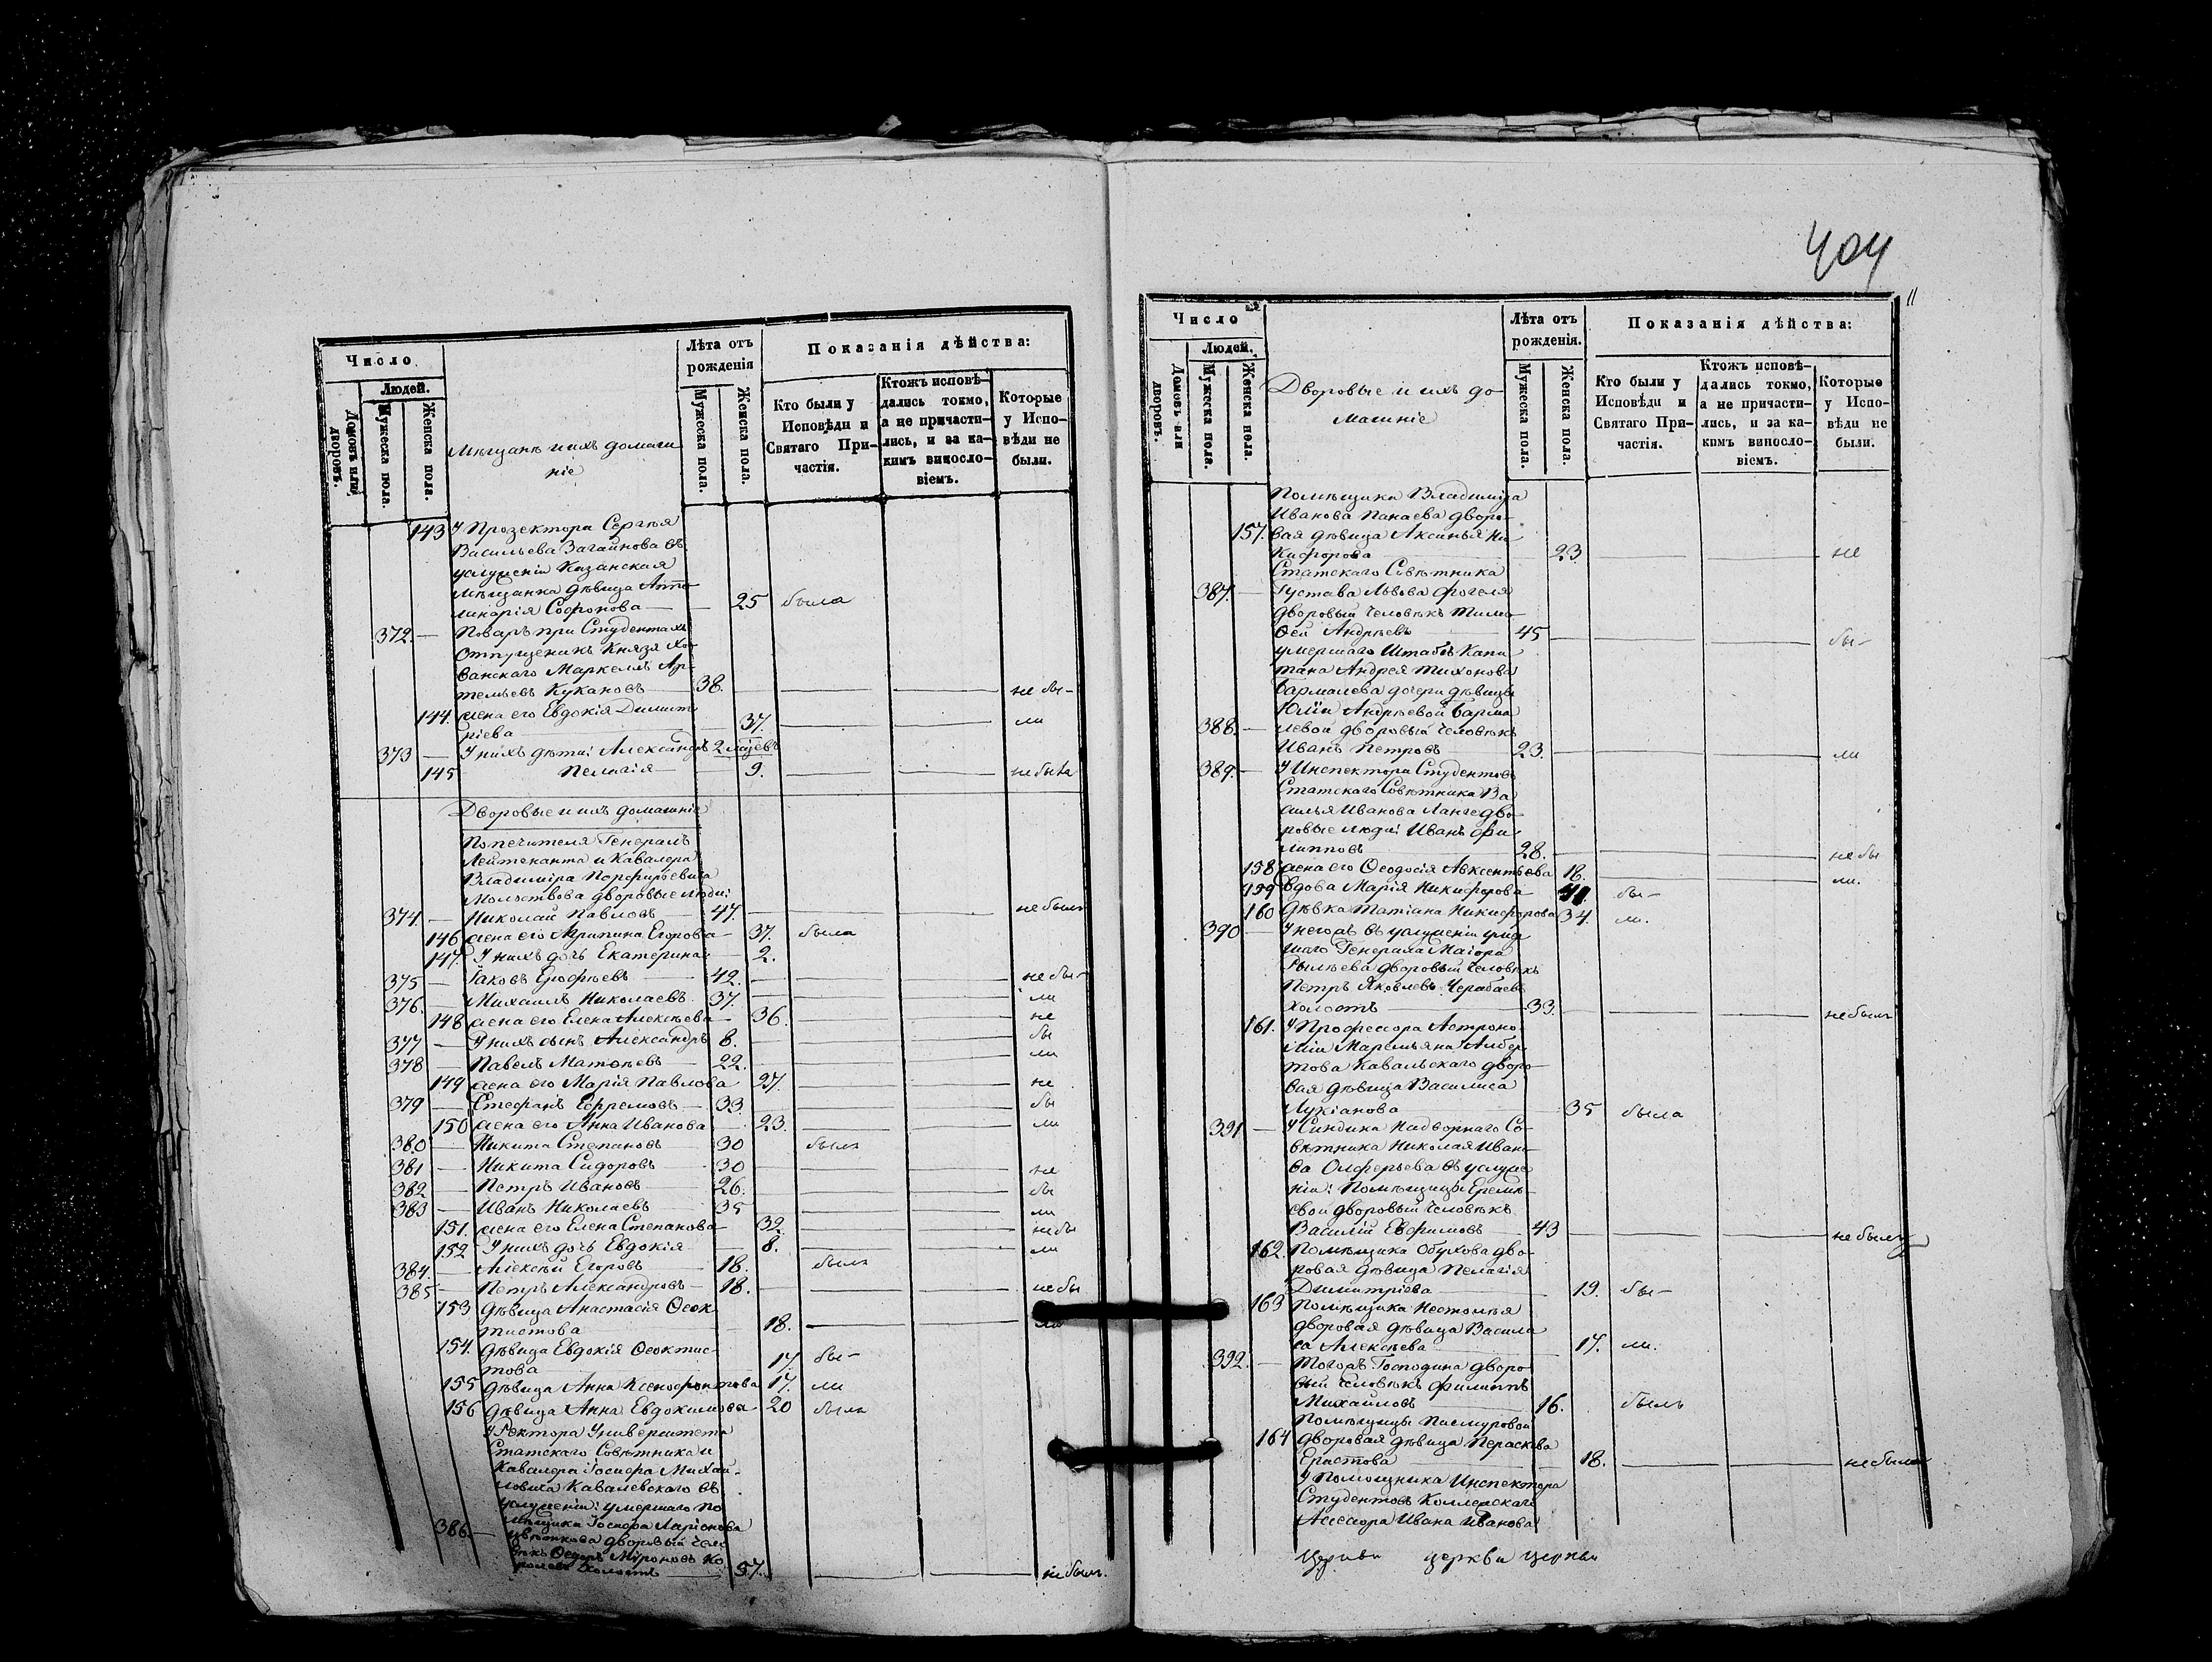 404
11
Число
Людей.
Домовъ или дворовъ.
Мужеска пола.
Женска пола.
Мѣщане и ихъ домаш
ніе
Лѣта отъ рожденія
Мужеска пола.
Женска пола.
Показанія дѣйства:
Кто были у Исповѣди и Святаго Причастія.
Ктожъ исповѣдались токмо, а не причастились, и за какимъ винословіемъ.
Которые у Исповѣди не были.
143 У Прозектора Сергѣя
Васильева Загайнова въ
услуженіи Казанская
мѣщанка дѣвица Апо
линарія Софонова — 25 была
372. — Поваръ при Студентахъ
Отпущеникъ Князя Хо
ванскаго Маркелъ Ар
темьевъ Кукановъ — 38. не бы-
144. жена его Евдокія Димит
ріева 37. ли
373 — У нихъ дѣти: Александръ 2 мѣсяцевъ
145 Пелагія — 9. не была
Дворовые и ихъ домашніе
Попечителя Генералъ
Лейтенанта и Кавалера
Владиміра Порфирьевича
Молоствова дворовые люди:
374. — Николай Павловъ — 47. не былъ
146 жена его Агрипина Егорова — 37. была
147. У нихъ дочь Екатерина 2.
375 — Іаковъ Ерофѣевъ — 42. не бы-
376. — Михаилъ Николаевъ 37. ли
148 жена его Елена Алексѣева — 36. не
377 — У нихъ сынъ Александръ 8. бы
378 — Павелъ Матвѣевъ — 22. ли
149 жена его Марія Павлова 27. не
379 — Стефанъ Ефремовъ — 33. бы
150 жена его Анна Иванова — 23. ли
380 — Никита Степановъ 30 былъ
381 — Никита Сидоровъ 30 не
382 — Петръ Ивановъ 26. бы
383 — Иванъ Николаевъ 35 ли
151. жена его Елена Степанова — 32. не бы
152 У нихъ дочь Евдокія 8. ли
384. — Алексѣй Егоровъ 18. былъ
385 — Петръ Александровъ — 18. не бы
153 дѣвица Анастасія Ѳеок
тистова 18. ли
154. дѣвица Евдокія Ѳеоктис
това 17. бы-
155 дѣвица Анна Ксенофонтова 17. ли
156 дѣвица Анна Евдокимова 20 была
У Ректора Университета
Статскаго Совѣтника и
Кавалера Іосифа Михай-
ловича Ковалевскаго въ
услуженіи: умершаго по
мѣщика Іосифа Ларіонова
386. — Цвѣткова дворовый чело
вѣкъ Ѳедоръ Мироновъ Ко
ролевъ Холостъ 57. не былъ.
Число
Людей.
Домовъ или дворовъ.
Мужеска пола.
Женска пола.
Дворовые и ихъ до
машніе
Лѣта отъ рожденія.
Мужеска пола.
Женска пола.
Показанія дѣйства:
Кто были у Исповѣди и Святаго Причастія.
Ктожъ исповѣдались токмо, а не причастились, и за какимъ винословіемъ.
Которые у Исповѣди не были.
Помѣщика Владиміра
Иванова Панаева дворо-
157. вая дѣвица Аксинья Ни
кифорова 23 не
Статскаго Совѣтника
387. — Густава Львова Фогеля
дворовый человѣкъ Тимо
ѳей Андреевъ 45 бы-
умершаго Штабсъ Капи
тана Андрея Тихонова
Бармалева дочери дѣвицы
Юліи Андреевой Барма
388. — левой дворовый человѣкъ
Иванъ Петровъ 23. ли
389. — У Инспектора Студентовъ
Статскаго Совѣтника Ва
силья Иванова Ланге дво-
ровые люди: Иванъ Фи
липповъ 28. не бы
158 жена его Ѳеодосія Авксентьева 18. ли.
159 вдова Марія Никифорова 41. бы-
160 дѣвка Татіана Никифорова 34. ли.
390 — У негожъ въ услуженіи умер
шаго Генерала Маіора
Рылѣева дворовый человѣкъ
Петръ Яковлевъ Черабаевъ
Холостъ 33. не былъ
161. У Профессора Астроно
міи Марельяна Албер
това Кавальскаго дворо
вая дѣвица Василиса
Лукіанова 35 была
391 — У Синдика Надворнаго Со-
вѣтника Николая Ивано
ва Олферьева въ услуже
ніи: Помѣщицы Еремѣ
евой дворовый человѣкъ
Василій Евфимовъ — 43 не былъ
162. Помѣщика Обухова дво-
ровая дѣвица Пелагія
Димитріева 19. бы-
163 Помѣщика Нестолья
дворовая дѣвица Васили
са Алексѣева 17. ли.
392. — Тогожъ Господина дворо
вый человѣкъ Филиппъ
Михайловъ 16. былъ
Помѣщицы Писмуровой
164 дворовая дѣвица Параскева
Ерастова 18. не была
У Помощника Инспектора
Студентовъ Коллежскаго
Ассесора Ивана Иванова
Церкви церкви церкви